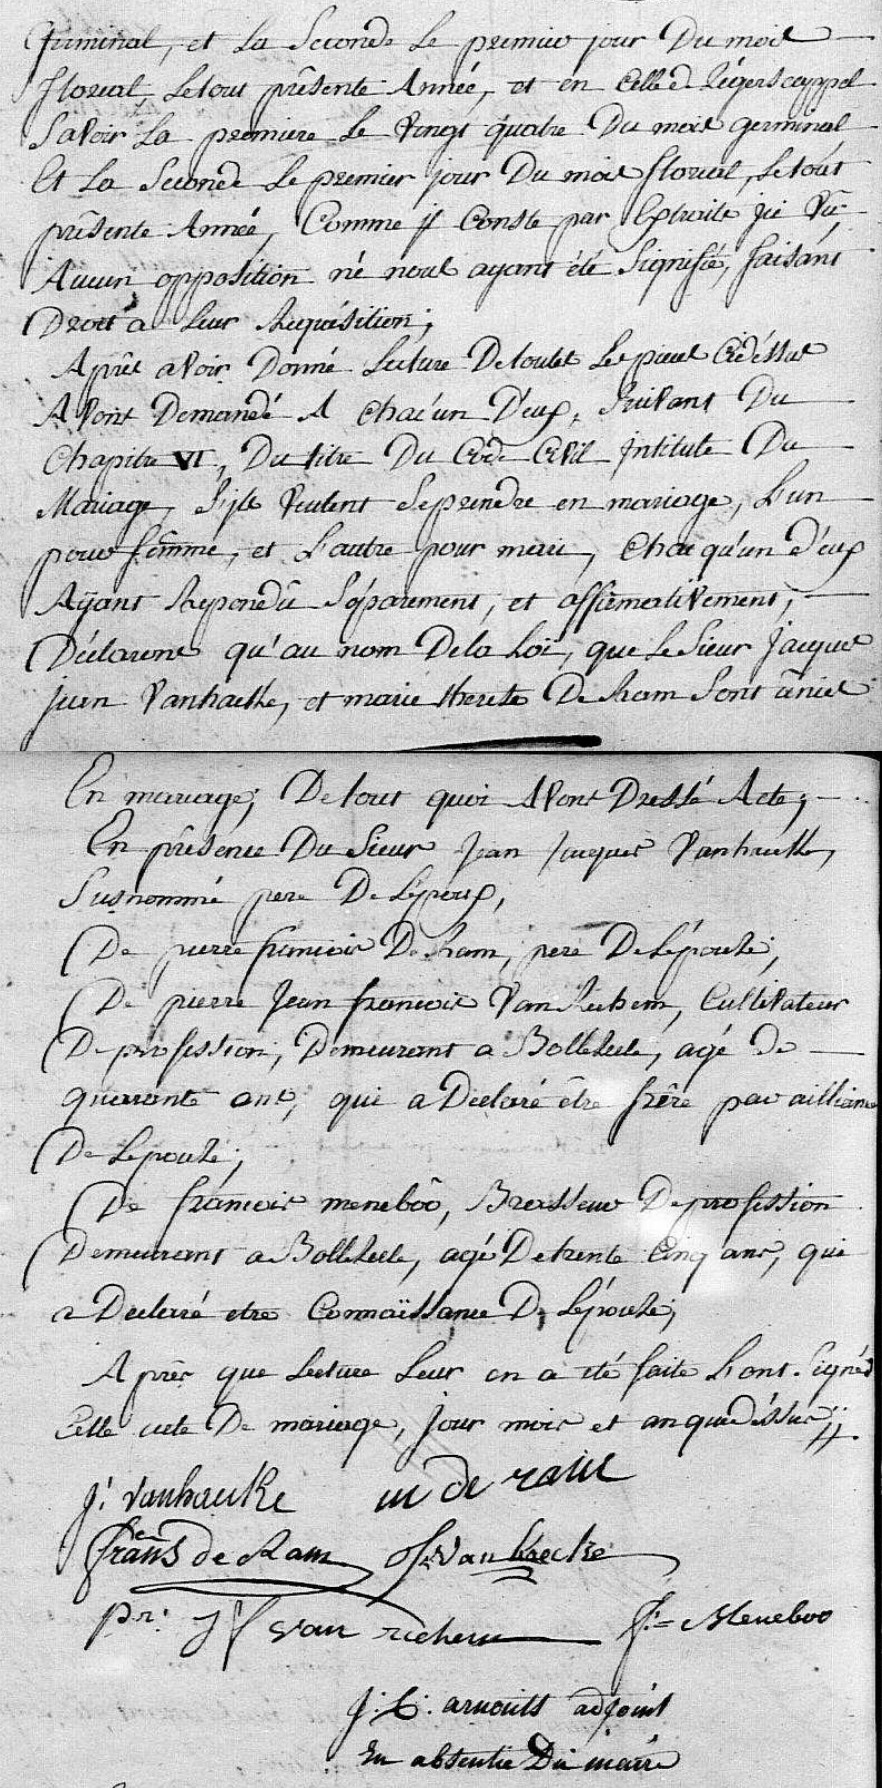 Germinal, et La Seconde Le premier jour Du mois
floreal Letout présente Année, et en Celle de Ledgerscappel
Savoir La premiere Le Vingt quatre Du mois germinal
Et La Seconde Le premier jour Du mois floreal, Letout
présente Année, Comme jl Conste par Extraits jci Vû
Aucun opposition né nous ayant été Signifié, faisant
Droit à Leur Requisition;
Aprés avoir Donné Lecture De toutes Les pieces Cidéssus
Avons Demandé A Chacun D'eux, Suivant Du
Chapitre VI, Du titre Du Code Civil Jntitule Du
Mariage, S'jls Veulent Se prendre en mariage, L'un
pour fémme, et L'autre pour mari, Chaqu'un d'eux
Ayant Repondû Séparement, et affirmativement,
Déclarons qu'au nom De la Loi, que Le Sieur Jacques
jean Vanhaecke, et marie therese De Ram Sont ûnies
En mariage; De tout quoi Avons Dressé Acte;
En présence Du Sieur Jean Jacques Vanhaecke,
Susnommé pere De Lépoux,
De pierre francois De Ram, pere De Lépouse,
De pierre Jean francois Van Rechem, Cultivateur
De profession, Demeurant a Bollezeele, agé de
quarante ans, qui a Déclaré être frêre par alliance
De Lepouse;
De francois meneboô, Brasseur De profession
Demeurant a Bollezeele, agé De trente Cinq ans, qui
a Declaré etre Connaissance De Lépouse,
Aprés que Lecture Leur en a été faite L'ont Signés
Cette acte De mariage, Jour mois et an que déssus;
j: vanhaecke m de ram
frans de Ram J: Van haecke
pr: j f van rechem f: Meneboo
J: C: arnouts adjoint
En absentie Du maire